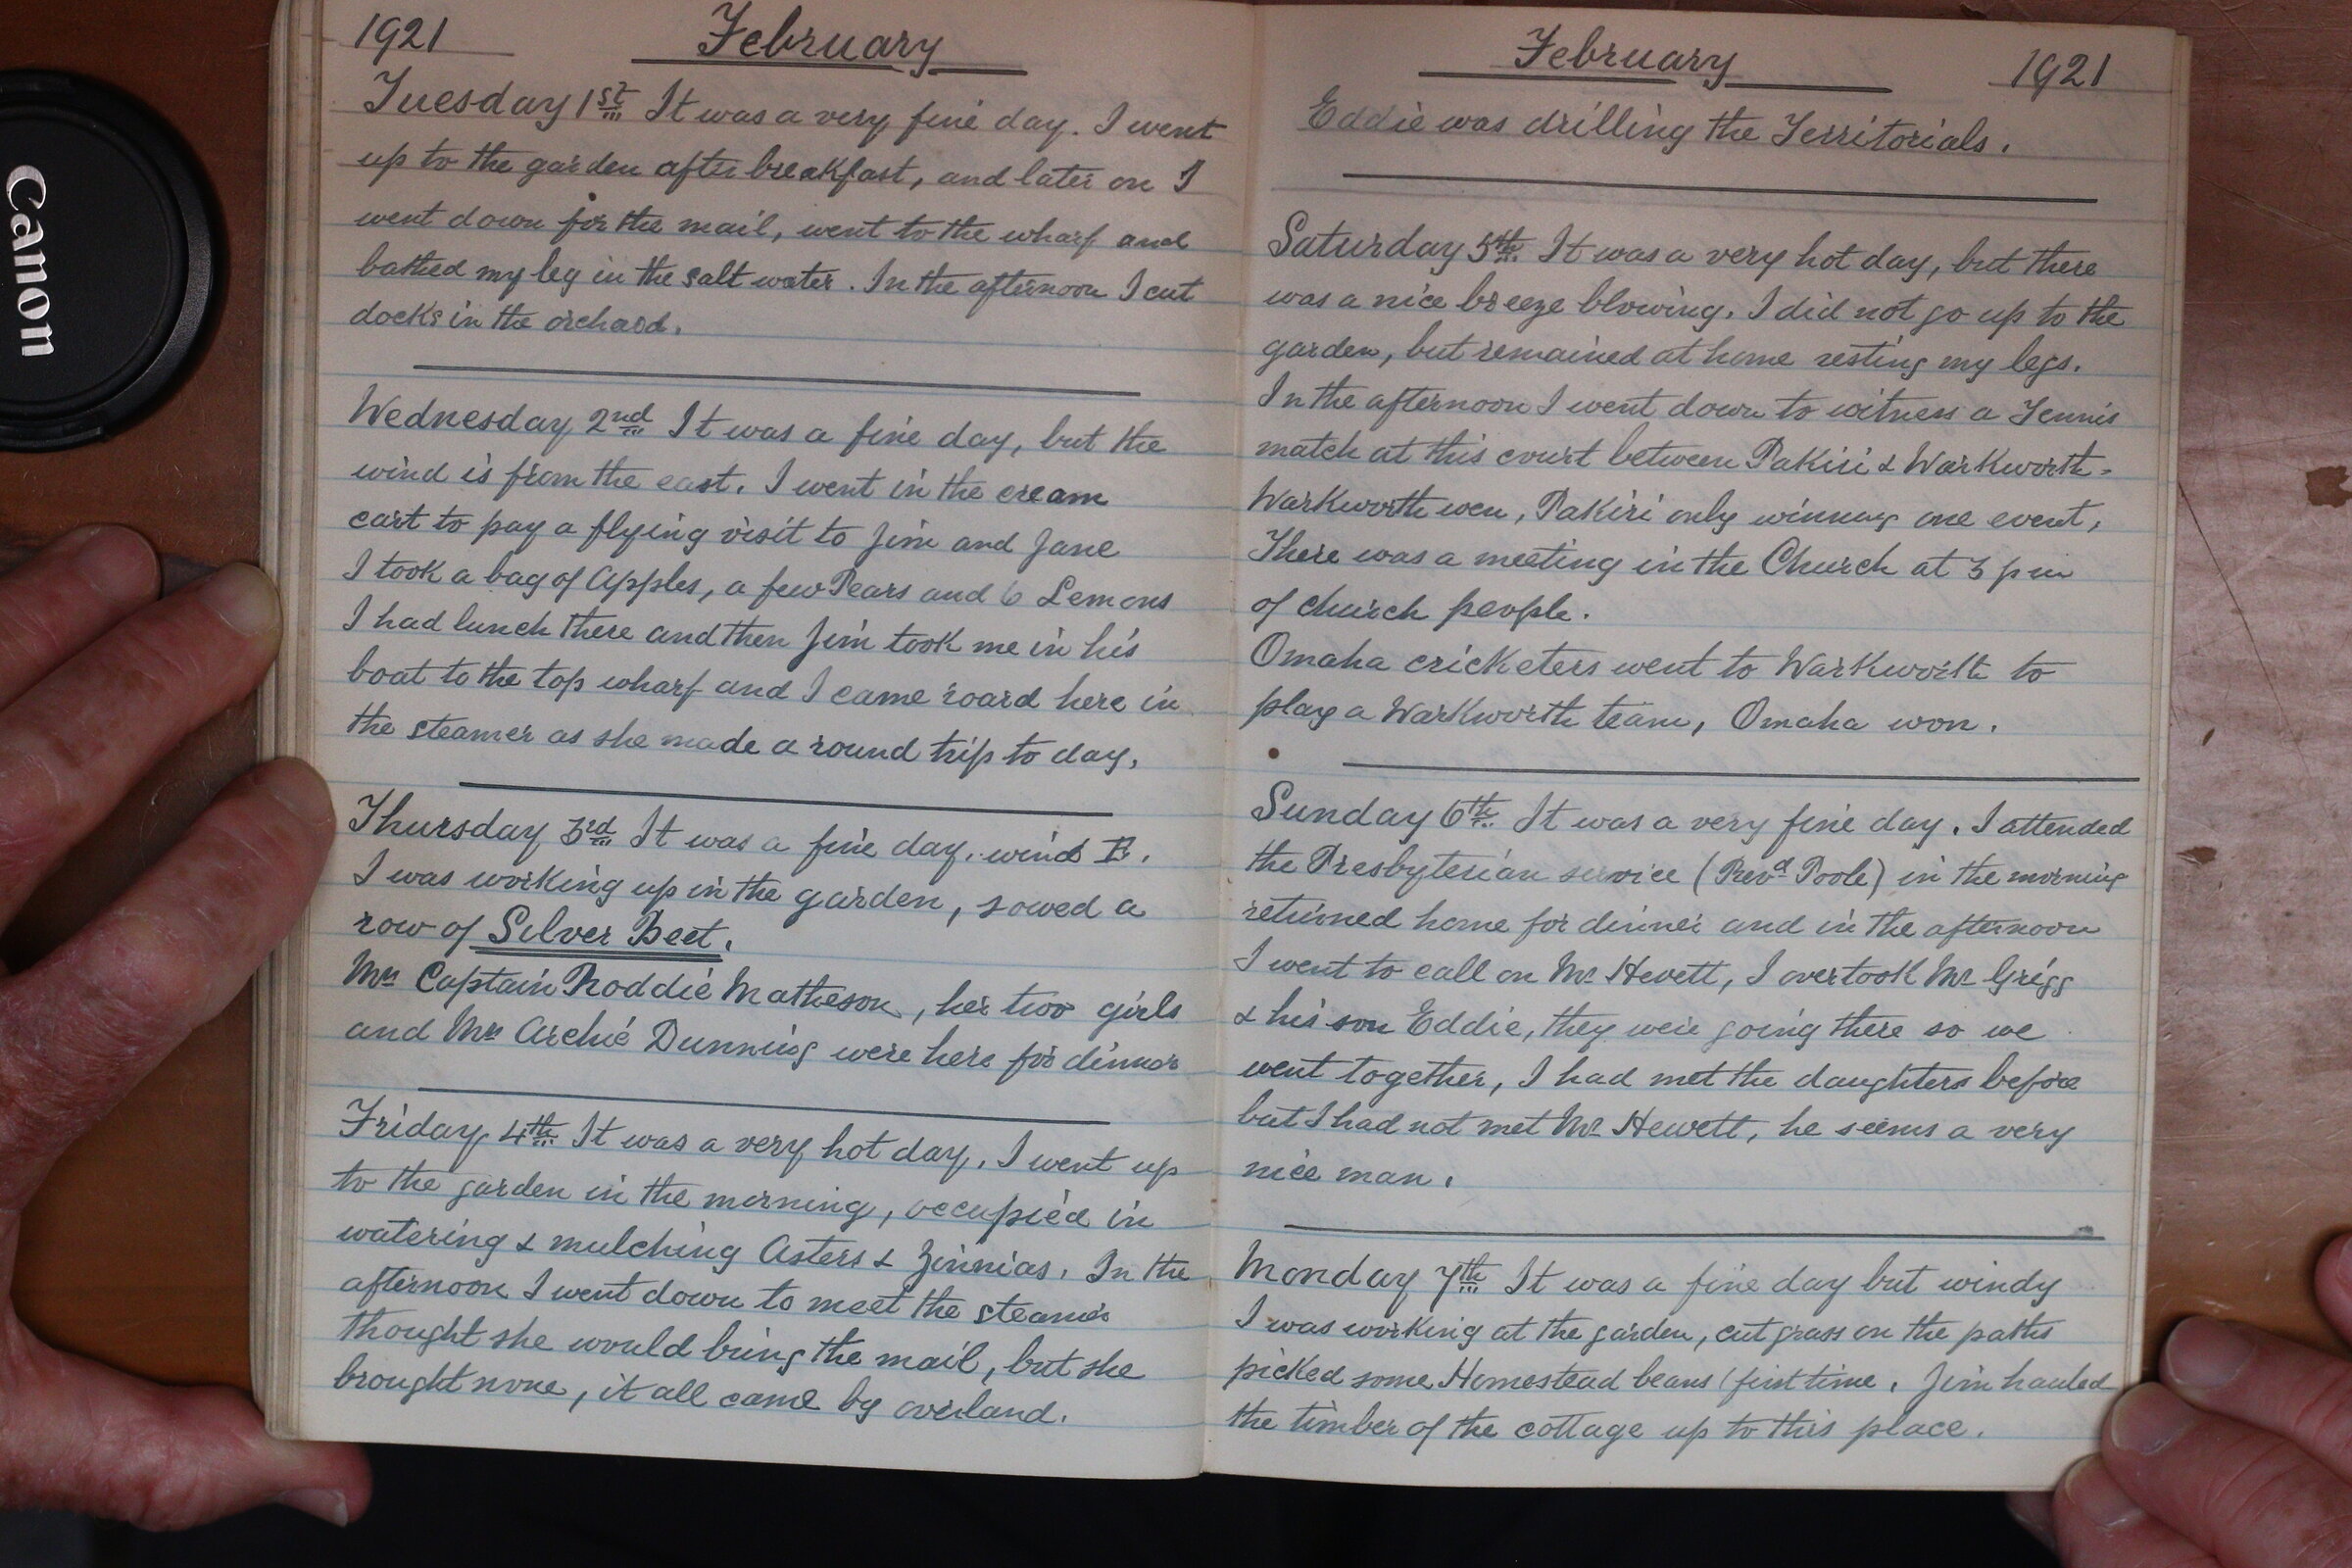 Canon
1921 February
Tuesday 1st It was a very fine day. I went
up to the garden after breakfast, and later on I
went down for the mail, went to the wharf and
bathed my leg in the salt water. In the afternoon I cut
docks in the orchard.
Wednesday 2nd It was a fine day, but the
wind is from the east. I went in the cream
cart to pay a flying visit to Jim and Jane
I took a bag of Apples, a few Pears and 6 Lemons
I had lunch there and then Jim took me in his
boat to the top wharf and I came roard here in
the steamer as she made a round trip to day.
Thursday 3rd It was a fine day. wind E.
I was working up in the garden, sowed a
row of Silver Beet.
Mrs Captain Roddie Matheson, her two girls
and Mrs Archie Dunning were here for dinner
Friday 4th It was a very hot day. I went up
to the garden in the morning, occupied in
watering & mulching Asters & Zinnias. In the
afternoon I went down to meet the steamer
thought she would bring the mail, but she
brought none, it all came by overland.
February 1921
Eddie was drilling the Territorials.
Saturday 5th It was a very hot day, but there
was a nice breeze blowing. I did not go up to the
garden, but remained at home resting my legs.
In the afternoon I went down to witness a Tennis
match at this court between Pakiri & Warkworth.
Warkworth won, Pakiri only winning one event,
There was a meeting in the Church at 3 pm
of church people.
Omaha cricketers went to Warkworth to
play a Warkworth team, Omaha won.
Sunday 6th It was a very fine day. I attended
the Presbyterian service (Revd Poole) in the morning
returned home for dinner and in the afternoon
I went to call on Mr Hewett, I overtook Mr Grigg
& his son Eddie, they were going there so we
went together, I had met the daughters before
but I had not met Mr Hewett, he seems a very
nice man.
Monday 7th It was a fine day but windy
I was working at the garden, cut grass on the paths
picked some Homestead beans (first time. Jim hauled
the timber of the cottage up to this place.